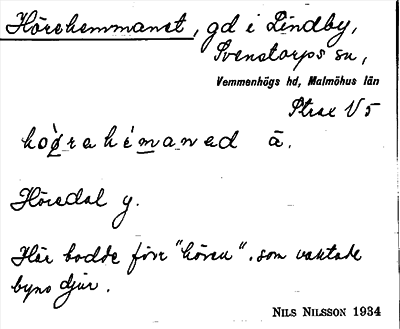 Hörehemmanet, gd i Lindby,
Svenstorps sn,
Vemmenhögs hd, Malmöhus län
Strax V 5
hò̤grahémanəd ā.
Höredal y.
Här bodde förr "hören", som vaktade
byns djur.
NILS NILSSON 1934